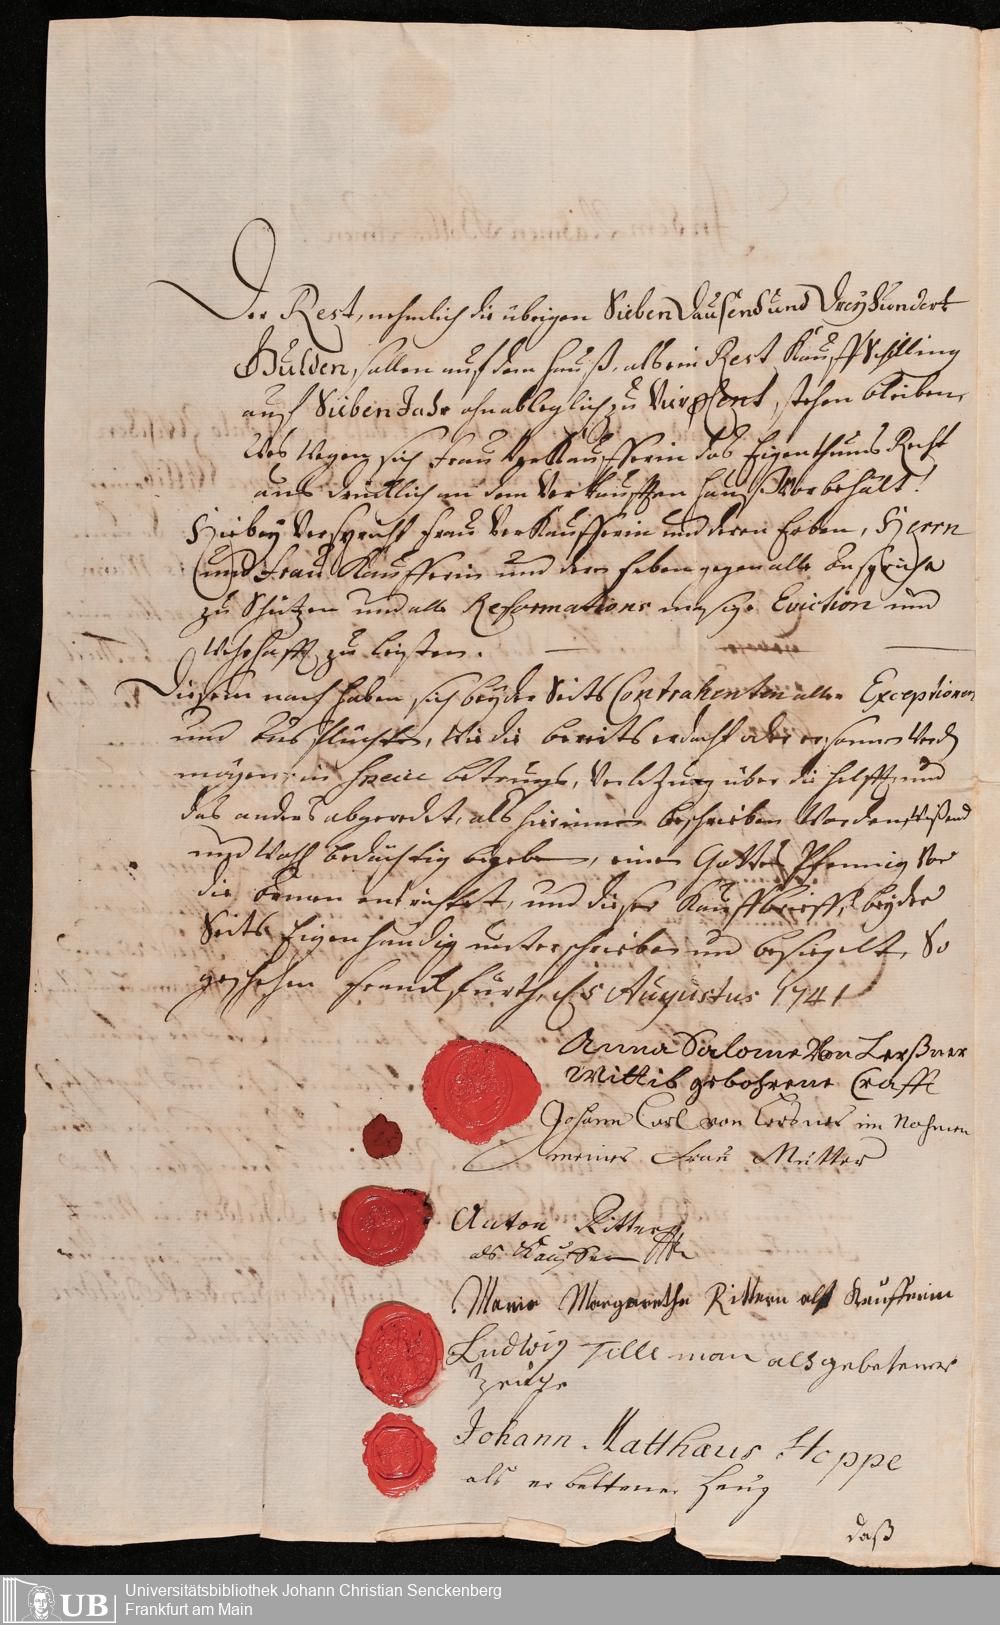 Der Rest, nehmlich die übrigen Sieben Dausend und Dreyhundert
Gulden, sollen auf dem Hauß, als ein Rest Kauff Schilling
auf Sieben Jahr ohnableglich zu Vier pCent, stehen bleiben,
Des Wegen sich Frau Verkaufferin das Eigenthums Recht
aus drücklich an dem Verkaufften Hauß Vorbehält!
Hiebey Verspricht Frau Verkaufferin und deren Erben, Herrn
und Frau Kaufferin und dero Erben gegen alle Ansprüche
zu Schützen und alle Reformations mäsige Eviction und
Wehrschafft zu leisten.
Diesem nach haben sich beyder Seits Contrahenten aller Exceptionen
und Ausflüchte, Wie die bereits erdacht oder ersonnen Werden
mögen, in specie betrugs, Verletzung über die helffte und
das anders abgeredet, als hierinnen beschrieben Worden, Wißend
und Wohl bedächtig begeben, einen Gottes Pfennig Vor
die Armen entrichtet, und dieser Kauffbrieff, beyder
Seits Eigenhändig unterschrieben und besiegelt, So
geschehen Franckfurth, 5 Augustus 1741
Anna Salome Von Lerßner
Wittib gebohrene Crafft
Johann Carl von Lersner im Nahmen
meiner Frau Mutter
Anton Ritter
als Kauffer
Maria Margaretha Rittern alß Kaufferin
Ludwig Tilleman als gebetener
Zeuge
Johann Matthæus Hoppe
als erbettener Zeug
daß
UB
Universitätsbibliothek Johann Christian Senckenberg
Frankfurt am Main